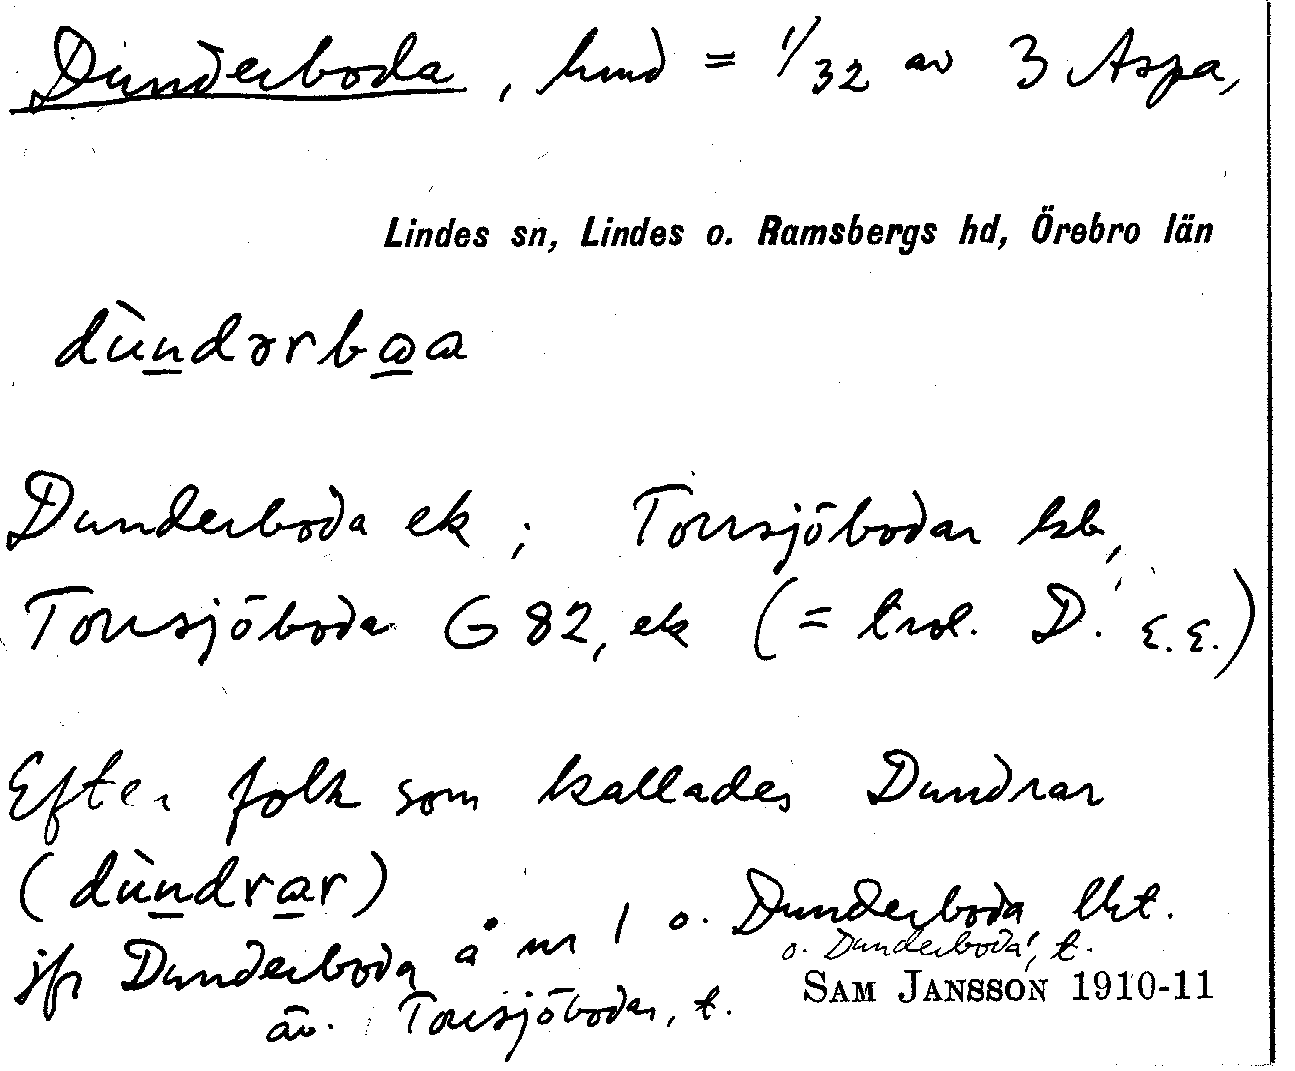 Dunderboda, hmd = 1/32 av 3 Aspa,
Lindes sn, Lindes o. Ramsbergs hd, Örebro län
dùndərbωa
Dunderboda ek; Torrsjöbodar hsb,
Torrsjöboda G 82, ek (= trol. D. E.E.)
Efter folk som kallades Dundrar
(dùndrar)
jfr Dunderboda å nr 1 o. Dunderboda lht.
o. Dunderboda, t.
äv. Torrsjöbodar, t.
SAM JANSSON 1910-11